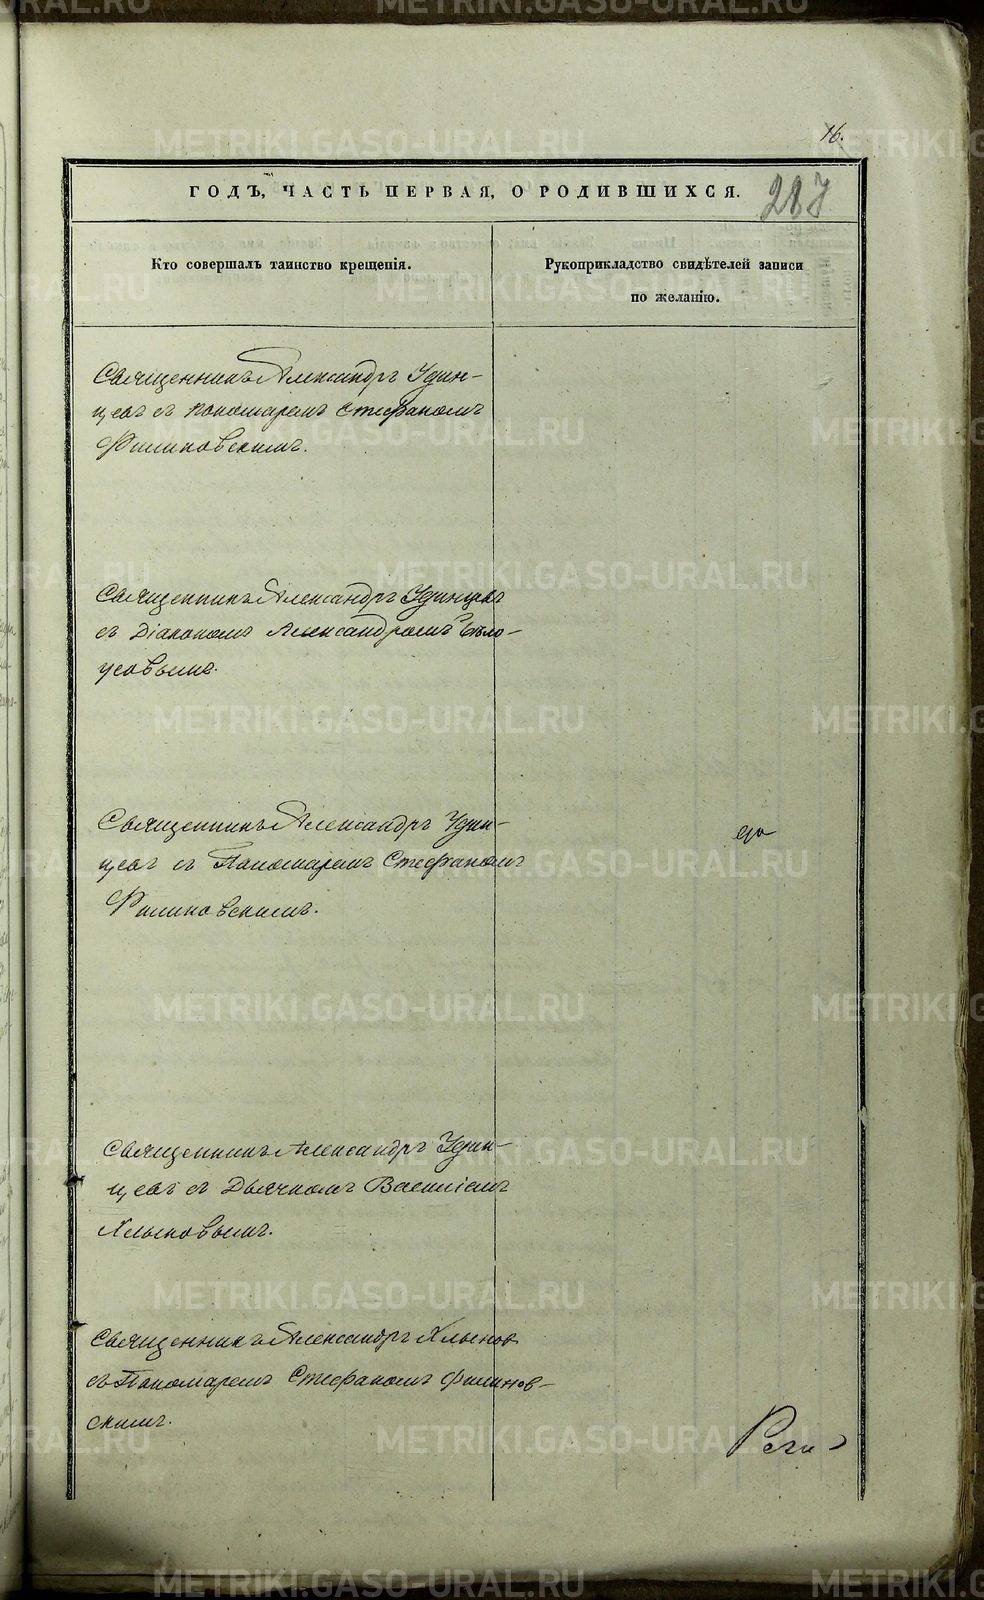 16.
287
ГОДЪ, ЧАСТЬ ПЕРВАЯ, О РОДИВШИХСЯ.
Кто совершалъ таинство крещенія.
Рукоприкладство свидѣтелей записи
по желанію.
Священникъ Александръ Удин-
цевъ съ пономаремъ Стефаномъ
Филиновскимъ.
Священникъ Александръ Удинцевъ
съ Діакономъ Александромъ Бѣло-
усовымъ.
Священникъ Александръ Удин-
цевъ съ Пономаремъ Стефаномъ
Филиновскимъ.
Священникъ Александръ Удин-
цевъ съ Дьячкомъ Василіемъ
Хлыновымъ.
Священникъ Александръ Хлынов
съ Пономаремъ Стефаномъ Филинов-
скимъ.
METRIKI.GASO-URAL.RU